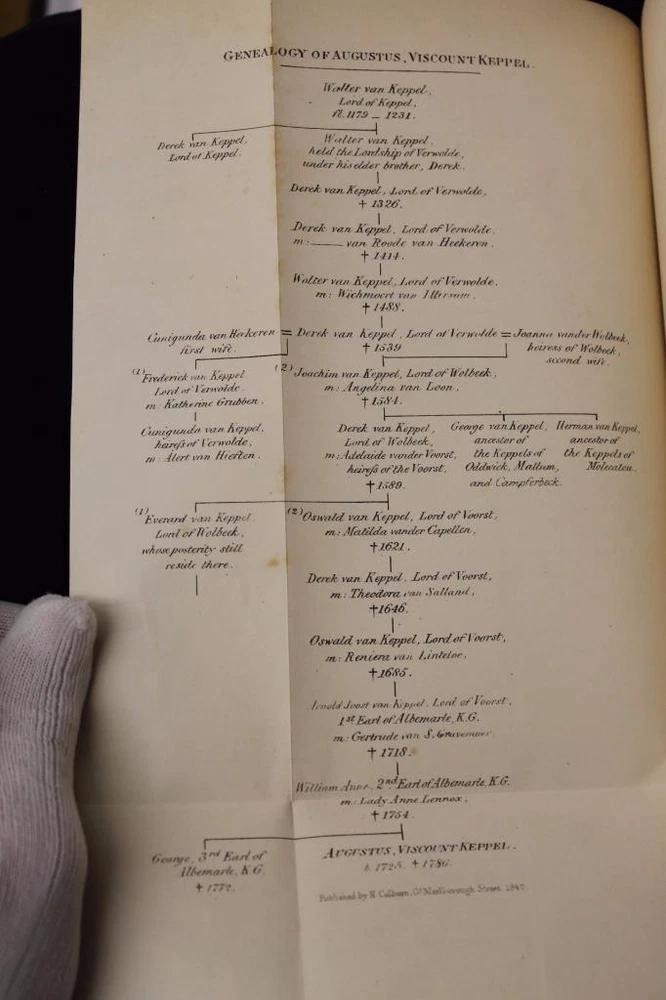 GENEALOGY OF AUGUSTUS, VISCOUNT KEPPEL.
Walter van Keppel,
Lord of Keppel,
fl. 1179 – 1231.
Derek van Keppel,
Lord of Keppel.
Walter van Keppel.
held the Lordship of Verwolde,
under his elder brother, Derek.
Derek van Keppel, Lord of Verwolde,
† 1326.
Derek van Keppel, Lord of Verwolde.
m: —— van Roode van Heekeren.
† 1414.
Wolter van Keppel, Lord of Verwolde.
m: Wichmoert van Ittersum.
† 1488.
Cunigunda van Heekeren
first wife.
= Derek van Keppel, Lord of Verwolde =
† 1539
Joanna vander Wolbeek,
heiress of Wolbeek,
second wife.
(1) Frederick van Keppel
Lord of Verwolde
m: Katherine Grubben.
Cunigunda van Keppel,
heiress of Verwolde,
m: Alert van Hieften.
(2) Joachim van Keppel, Lord of Wolbeek,
m: Angelina van Loon,
† 1584.
Derek van Keppel,
Lord of Wolbeek,
m: Adelaide vander Voorst,
heiress of the Voorst,
† 1589.
George van Keppel,
ancestor of
the Keppels of
Oddwick, Mallum,
and Campferbeck.
Herman van Keppel,
ancestor of
the Keppels of
Molecaten.
(1) Everard van Keppel
Lord of Wolbeck,
whose posterity still
reside there.
(2) Oswald van Keppel, Lord of Voorst,
m: Matilda vander Capellen,
† 1621.
Derek van Keppel, Lord of Voorst,
m: Theodora van Salland,
† 1646.
Oswald van Keppel, Lord of Voorst,
m: Reniera van Linteloe,
† 1685.
Arnold Joost van Keppel, Lord of Voorst,
1st Earl of Albemarle, K.G.
m: Gertrude van S. Gravemoer
† 1718.
William Anne, 2nd Earl of Albemarle, K.G.
m: Lady Anne Lennox,
† 1754.
George, 3rd Earl of
Albemarle, K.G.
† 1772.
AUGUSTUS, VISCOUNT KEPPEL.
b. 1725. † 1786.
Published by H. Colburn, Gt. Marlborough Street, 1842.